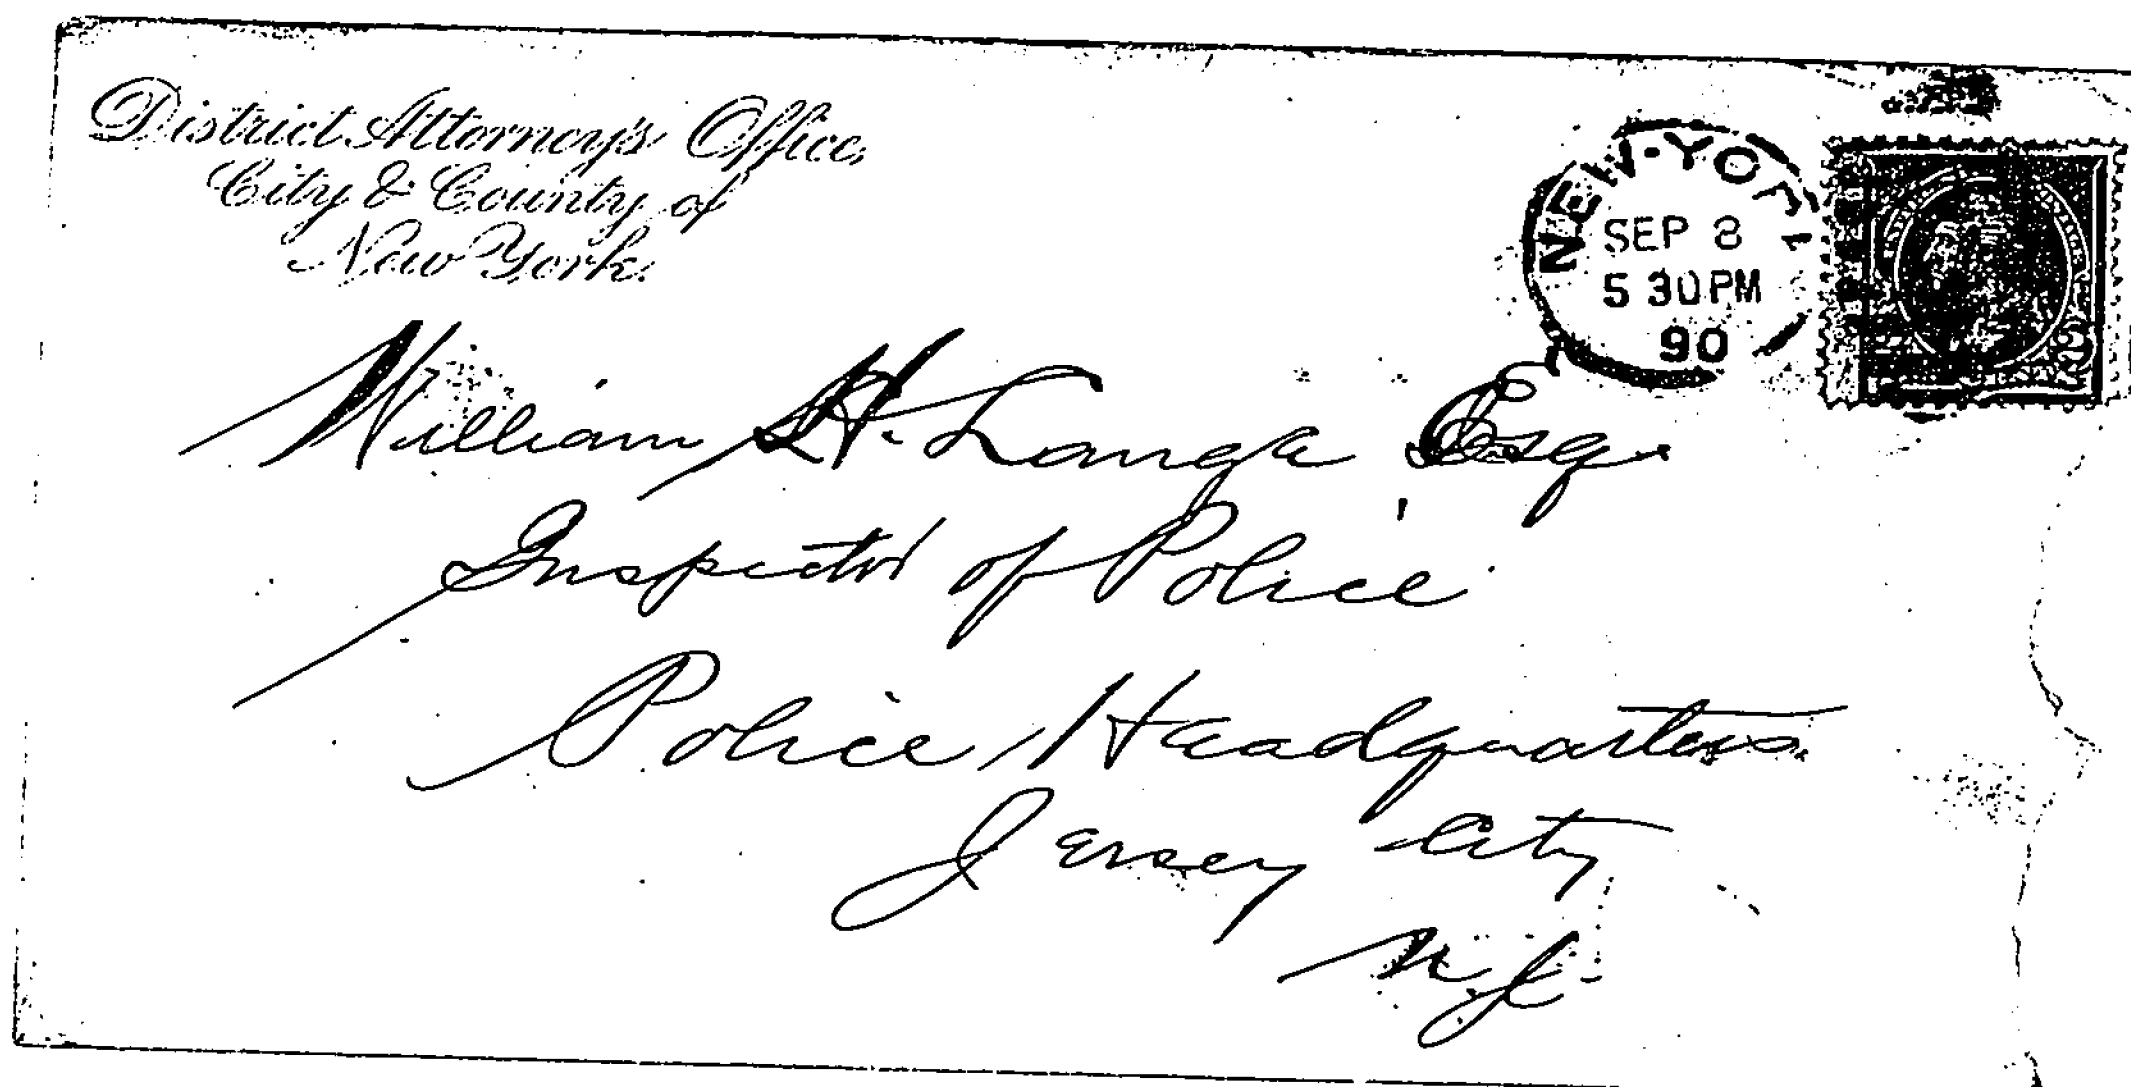 District Attorney's Office,
City & County of
New York.
NEW-YORK
SEP 8
5 30 PM
90
2
William H. Lange Esq.
Inspector of Police
Police Headquarters
Jersey City
N.J.